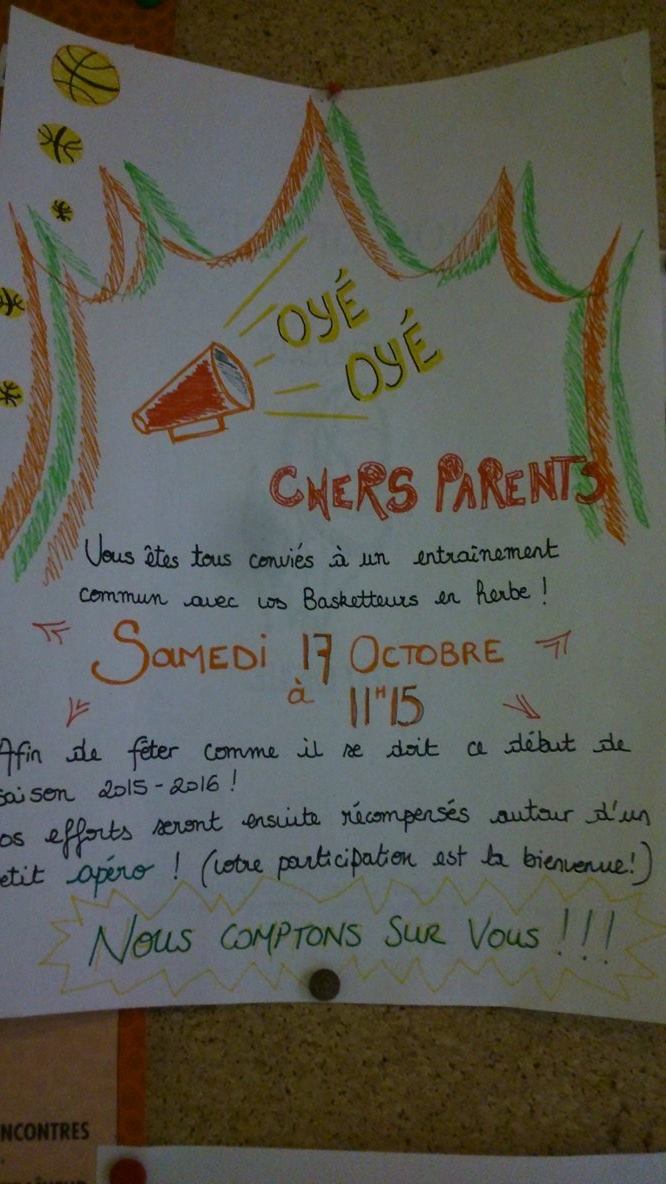 OYÉ
OYÉ
CHERS PARENTS
Vous êtes tous conviés à un entraînement
commun avec vos Basketteurs en herbe !
SAMEDI 17 OCTOBRE
à 11H15
Afin de fêter comme il se doit ce début de
saison 2015-2016 !
os efforts seront ensuite récompensés autour d'un
etit apéro ! (votre participation est la bienvenue!)
NOUS COMPTONS SUR VOUS !!!
NCONTRES